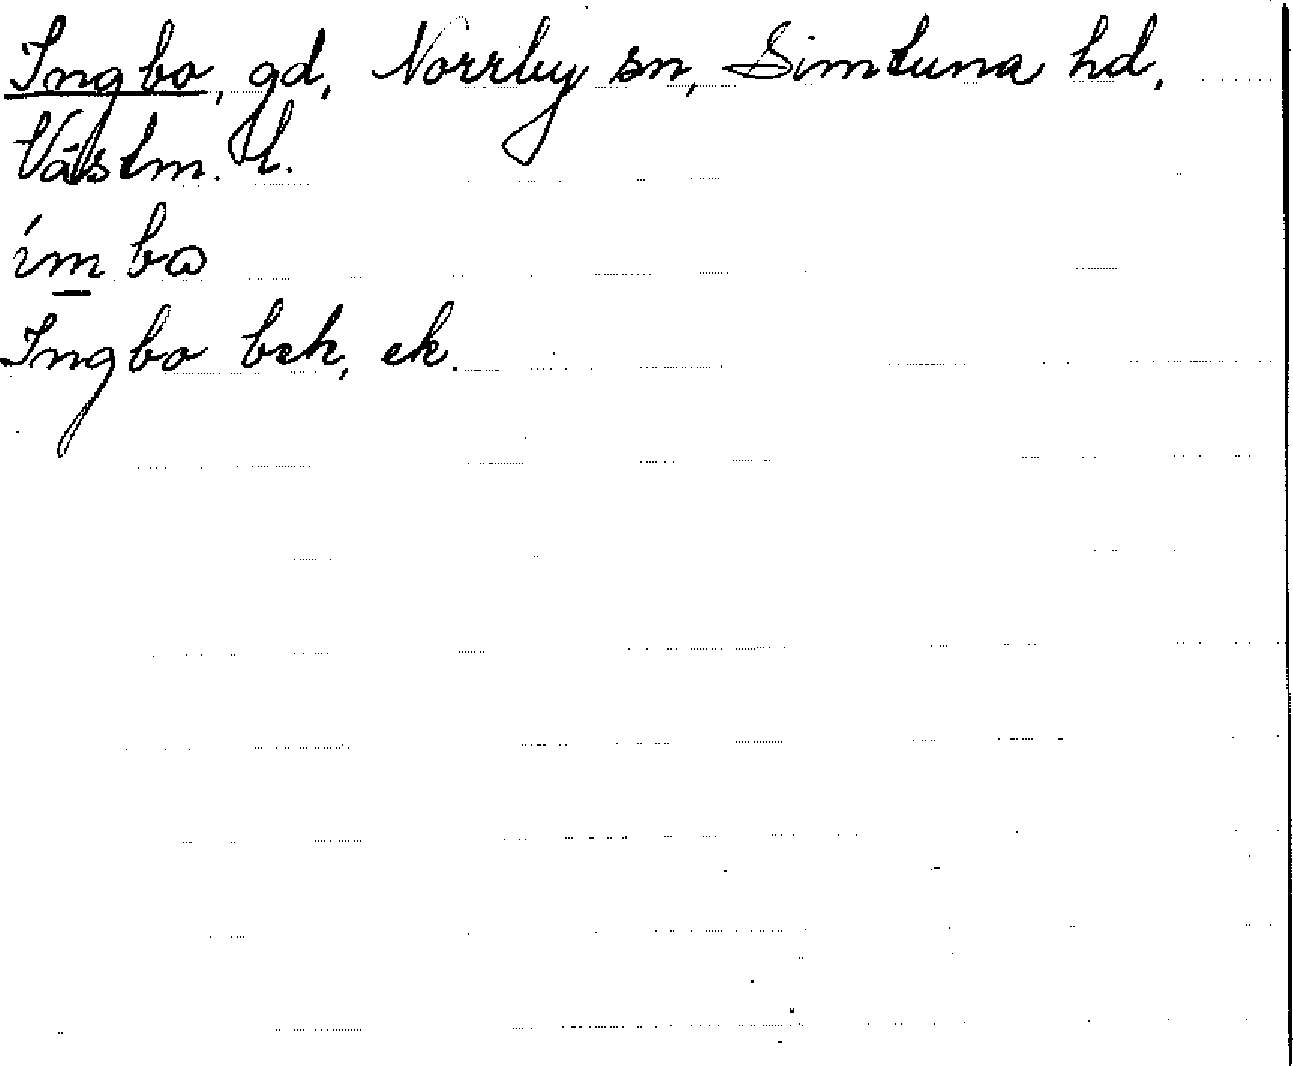 Ingbo, gd, Norrby sn, Simtuna hd,
Västm. l.
ím bω
Ingbo bek, ek.